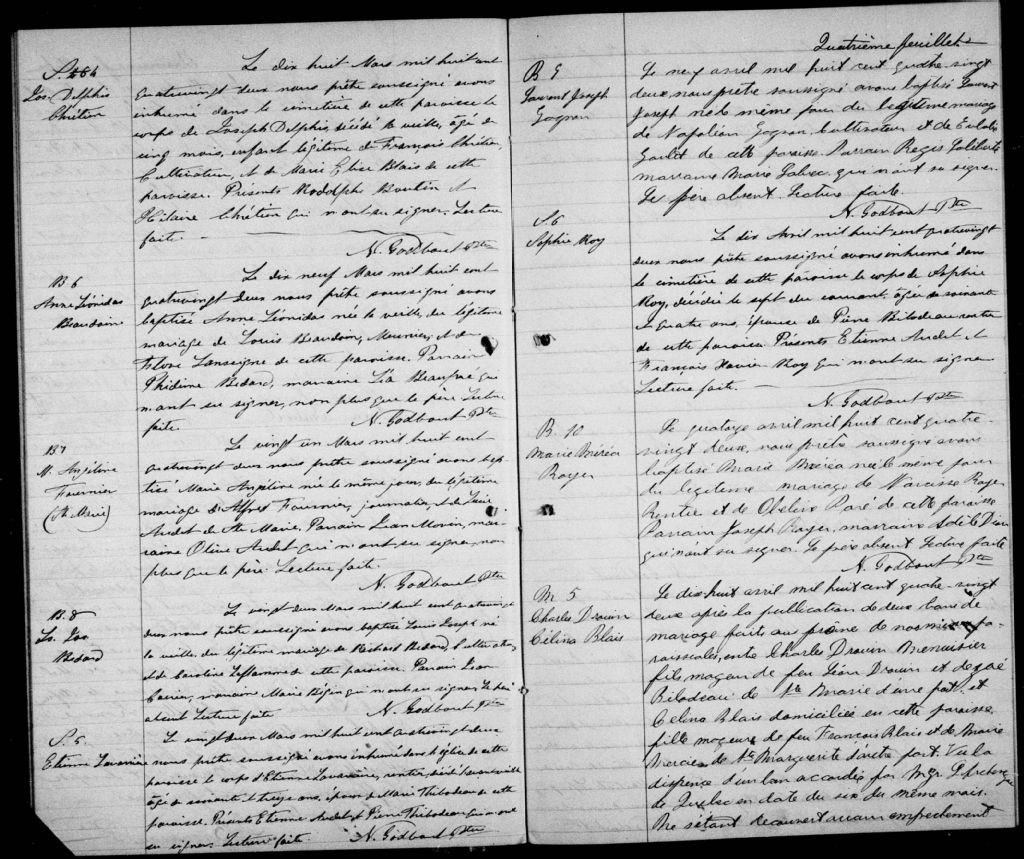 S. 4
Jos. Delphis
Chrétien
Le dix huit Mars mil huit cent
quatrevingt deux nous prêtre soussigné avons
inhumé dans le cimetière de cette paroisse le
corps de Joseph Delphis, décédé la veille, âgé de
cinq mois, enfant légitime de François Chrétien
Cultivateur, et de Marie Elise Blais de cette
paroisse. Présents Rodolphe Boutin et
Hilaire Chrétien qui n'ont su signer. Lecture
faite.
N. Godbout Ptre
B 6
Anne Léonidas
Beaudoin
Le dix neuf Mars mil huit cent
quatrevingt deux nous prêtre soussigné avons
baptisé Anne Léonidas née la veille, du légitime
mariage de Louis Beaudoin, Meunier, et de
Flore de cette paroisse. Parrain
Bedard, marraine Léa Beaupré qui
n'ont su signer, non plus que le père. Lecture
faite.
N. Godbout Ptre
B 7
M. Angéline
Fournier
(Ste Marie)
Le vingt un Mars mil huit cent
quatrevingt deux nous prêtre soussigné avons bap-
tisé Marie Angéline née le même jour, du légitime
mariage d'Alfred Fournier, journalier, et de
Audet de Ste Marie. Parrain Jean Morin, mar-
raine Olive Audet qui n'ont su signer, non
plus que le père. Lecture faite.
N. Godbout Ptre
B. 8
Ls. Jos
Bedard
Le vingt deux Mars mil huit cent quatrevingt
deux nous prêtre soussigné avons baptisé Louis Joseph né
la veille, du légitime mariage de Richard Bedard, Cultivateur,
et de Caroline Laflamme de cette paroisse. Parrain Jean
marraine Marie qui n'ont su signer. Le père
absent. Lecture faite
N. Godbout Ptre
S. 5.
Etienne
Le vingt deux Mars mil huit cent quatrevingt deux
nous prêtre soussigné avons inhumé dans l'église de cette
paroisse le corps d'Etienne rentier, décédé
âgé de soixante et treize ans, époux de Marie Thibodeau de cette
paroisse. Présents Etienne Audet et Pierre Thibodeau qui n'ont
su signer. Lecture faite.
N. Godbout Ptre
Quatrième feuillet
B 9
Laurent Joseph
Gagnon
Le neuf avril mil huit cent quatre-vingt
deux, nous prêtre soussigné avons baptisé Laurent
Joseph né le même jour du légitime mariage
de Napoléon Gagnon, Cultivateur et de Eulalie
de cette paroisse. Parrain Régis Laliberté
marraine Marie qui n'ont su signer.
Le père absent. Lecture faite.
N. Godbout Ptre
S. 6
Sophie Roy
Le dix Avril mil huit cent quatrevingt
deux nous prêtre soussigné avons inhumé dans
le cimetière de cette paroisse le corps de Sophie
Roy, décédée le sept du courant, âgée de soixante
et quatre ans, épouse de Pierre Bilodeau rentier
de cette paroisse. Présents Etienne Audet et
François Xavier Roy qui n'ont su signer
Lecture faite.
N. Godbout Ptre
B. 10
Marie
Royer
Le quatorze avril mil huit cent quatre-
vingt deux, nous prêtre soussigné avons
baptisé Marie née le même jour
du légitime mariage de Narcisse Royer
Rentier et de Obeline Paré de cette paroisse
Parrain Joseph Royer, marraine Adèle Drouin
qui n'ont su signer. Le père absent. Lecture faite.
N. Godbout Ptre
M 5
Charles Drouin
Célina Blais
Le dix huit avril mil huit cent quatre-vingt
deux après la publication de deux bans de
mariage faits au prône de nos messes pa-
roissiales, entre Charles Drouin Menuisier
fils majeur de feu Léon Drouin et de
Bilodeau de Ste Marie d'une part, et
Célina Blais domiciliée en cette paroisse
fille majeure de feu François Blais et de Marie
Mercier de Ste Marguerite d'autre part. Vu la
dispense d'un ban accordée par Mgr l'Archevêque
de Québec en date du six du même mois.
Ne s'étant découvert aucun empêchement